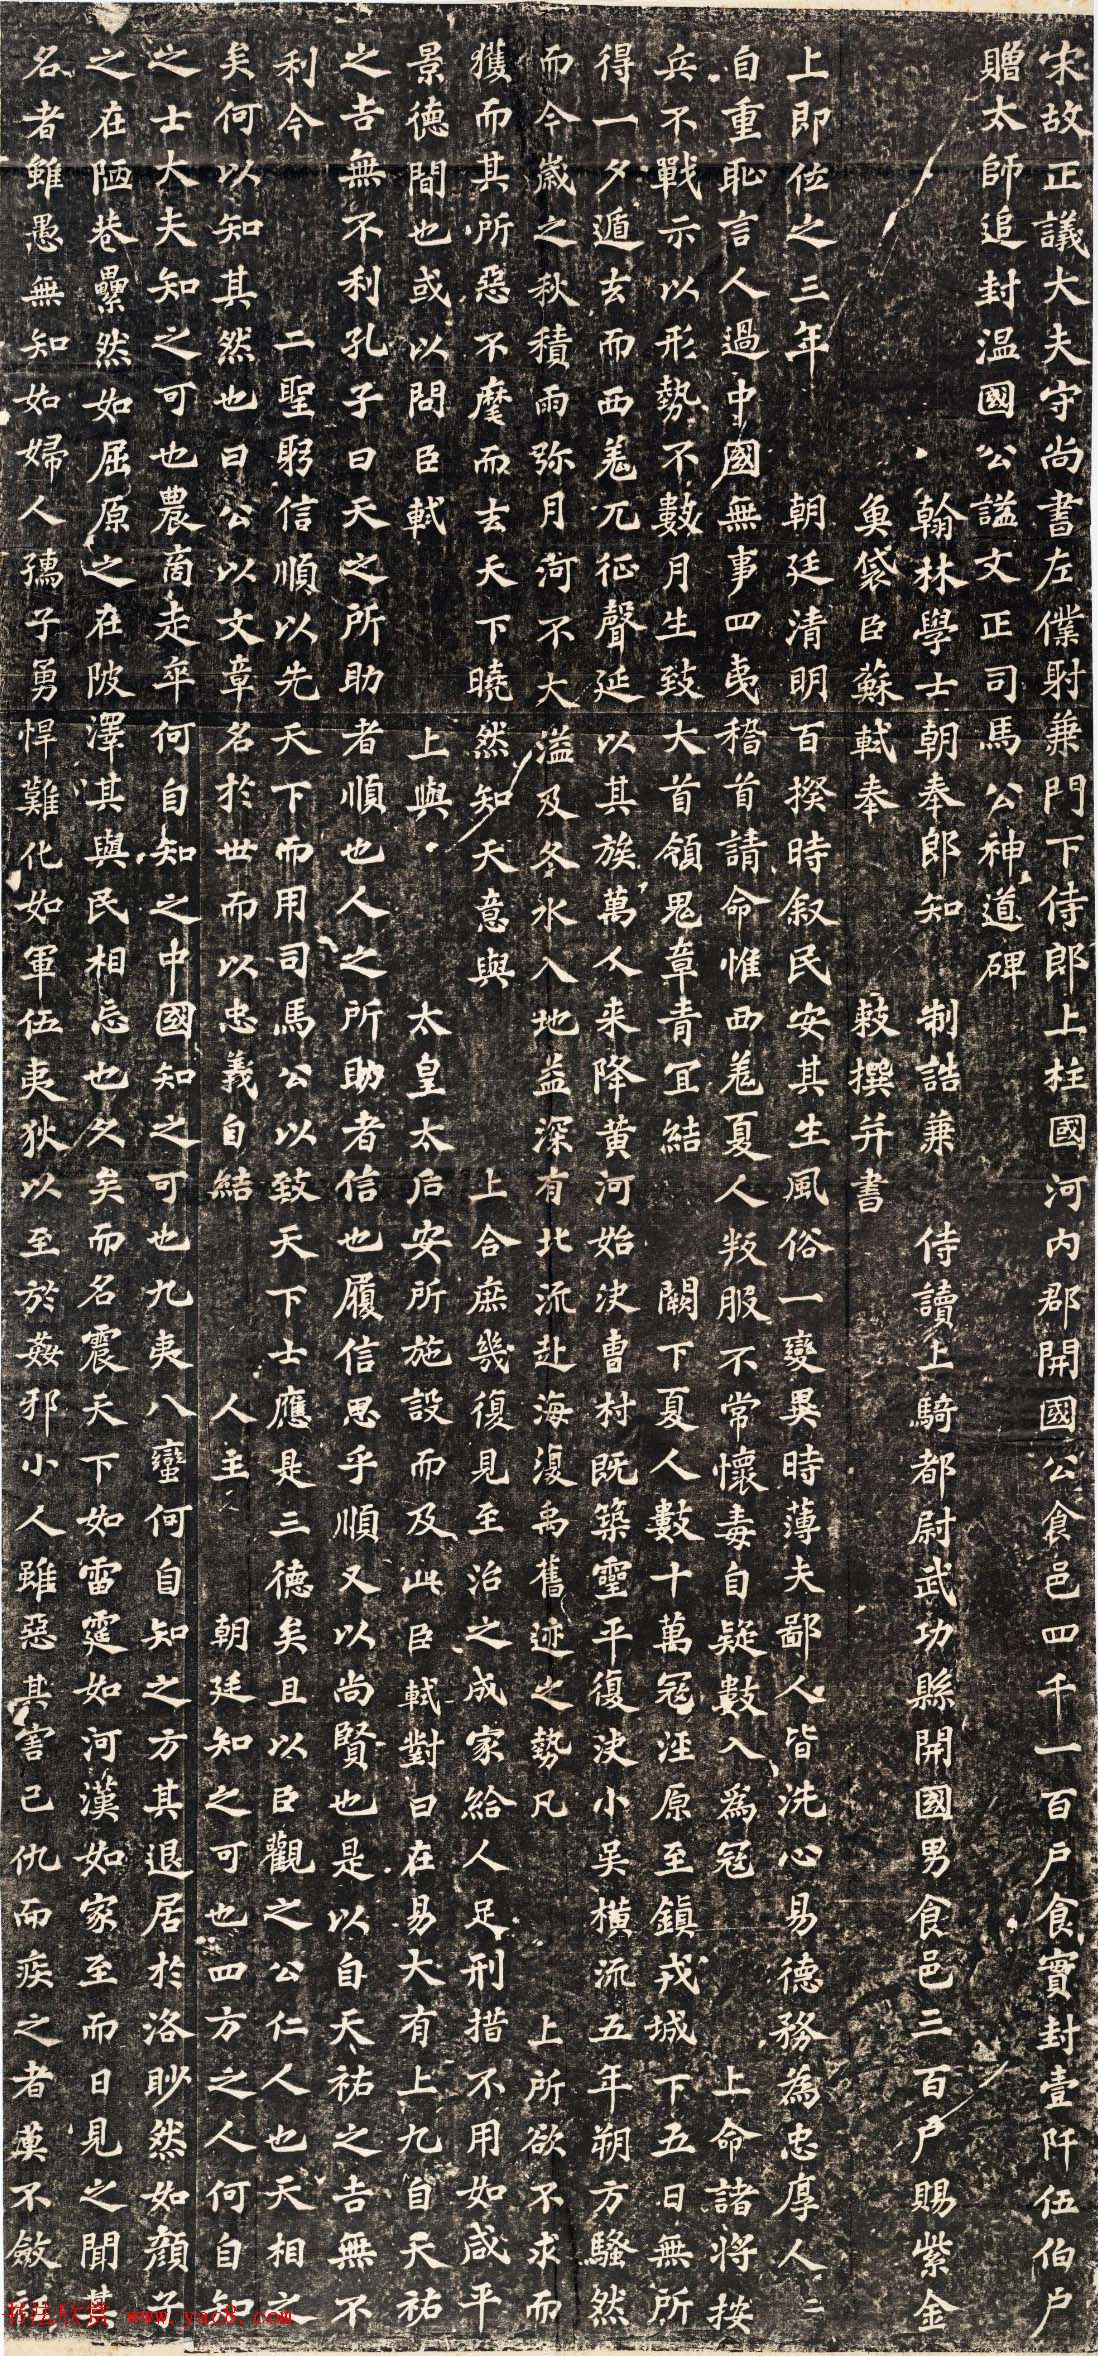 宋故正議大夫守尚書左僕射兼門下侍郎上柱國河内郡開國公食邑四千一百户食實封壹阡伍伯户
贈太師追封温國公謚文正司馬公神道碑
翰林學士朝奉郎知 制誥兼 侍讀上騎都尉武功縣開國男食邑三百户賜紫金
魚袋臣蘇軾奉 敕撰并書
上即位之三年 朝廷清明百揆時叙民安其生風俗一變異時薄夫鄙人皆洗心易德務為忠厚人人
自重恥言人過中國無事四夷稽首請命惟西羌夏人叛服不常懷毒自疑數入為寇 上命諸將按
兵不戰示以形勢不數月生致大首領鬼章青宜結 闕下夏人數十萬寇涇原至鎮戎城下五日無所
得一夕遁去而西羌兀征聲延以其族萬人来降黄河始决曹村既築靈平復决小吴横流五年朔方騷然
而今歲之秋積雨弥月河不大溢及冬水入地益深有北流赴海復禹舊迹之勢凡 上所欲不求而
獲而其所惡不麾而去天下曉然知天意與 上合庶幾復見至治之成家給人足刑措不用如咸平
景德間也或以問臣軾 上與 太皇太后安所施設而及此臣軾對曰在易大有上九自天祐
之吉無不利孔子曰天之所助者順也人之所助者信也履信思乎順又以尚賢也是以自天祐之吉無不
利今 二聖躬信順以先天下而用司馬公以致天下士應是三德矣且以臣觀之公仁人也天相之
矣何以知其然也曰公以文章名於世而以忠義自結 人主 朝廷知之可也四方之人何自知
之士大夫知之可也農商走卒何自知之中國知之可也九夷八蠻何自知之方其退居於洛眇然如顔子
之在陋巷纍然如屈原之在陂澤其與民相忘也久矣而名震天下如雷霆如河漢如家至而日見之聞其
名者雖愚無知如婦人孺子勇悍難化如軍伍夷狄以至於姦邪小人雖惡其害己仇而疾之者莫不斂
书法欣赏 www.yac8.com